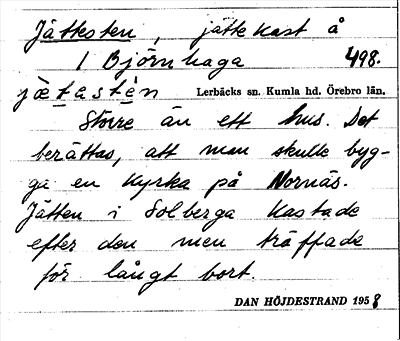 Jättesten, jättekast å
1 Björnhaga 498.
jæ̀tastèn Lerbäcks sn. Kumla hd. Örebro län.
Större än ett hus. Det
berättas, att man skulle byg-
ga en kyrka på Nornäs.
Jätten i Solberga kastade
efter den men träffade
för långt bort.
DAN HÖJDESTRAND 1958